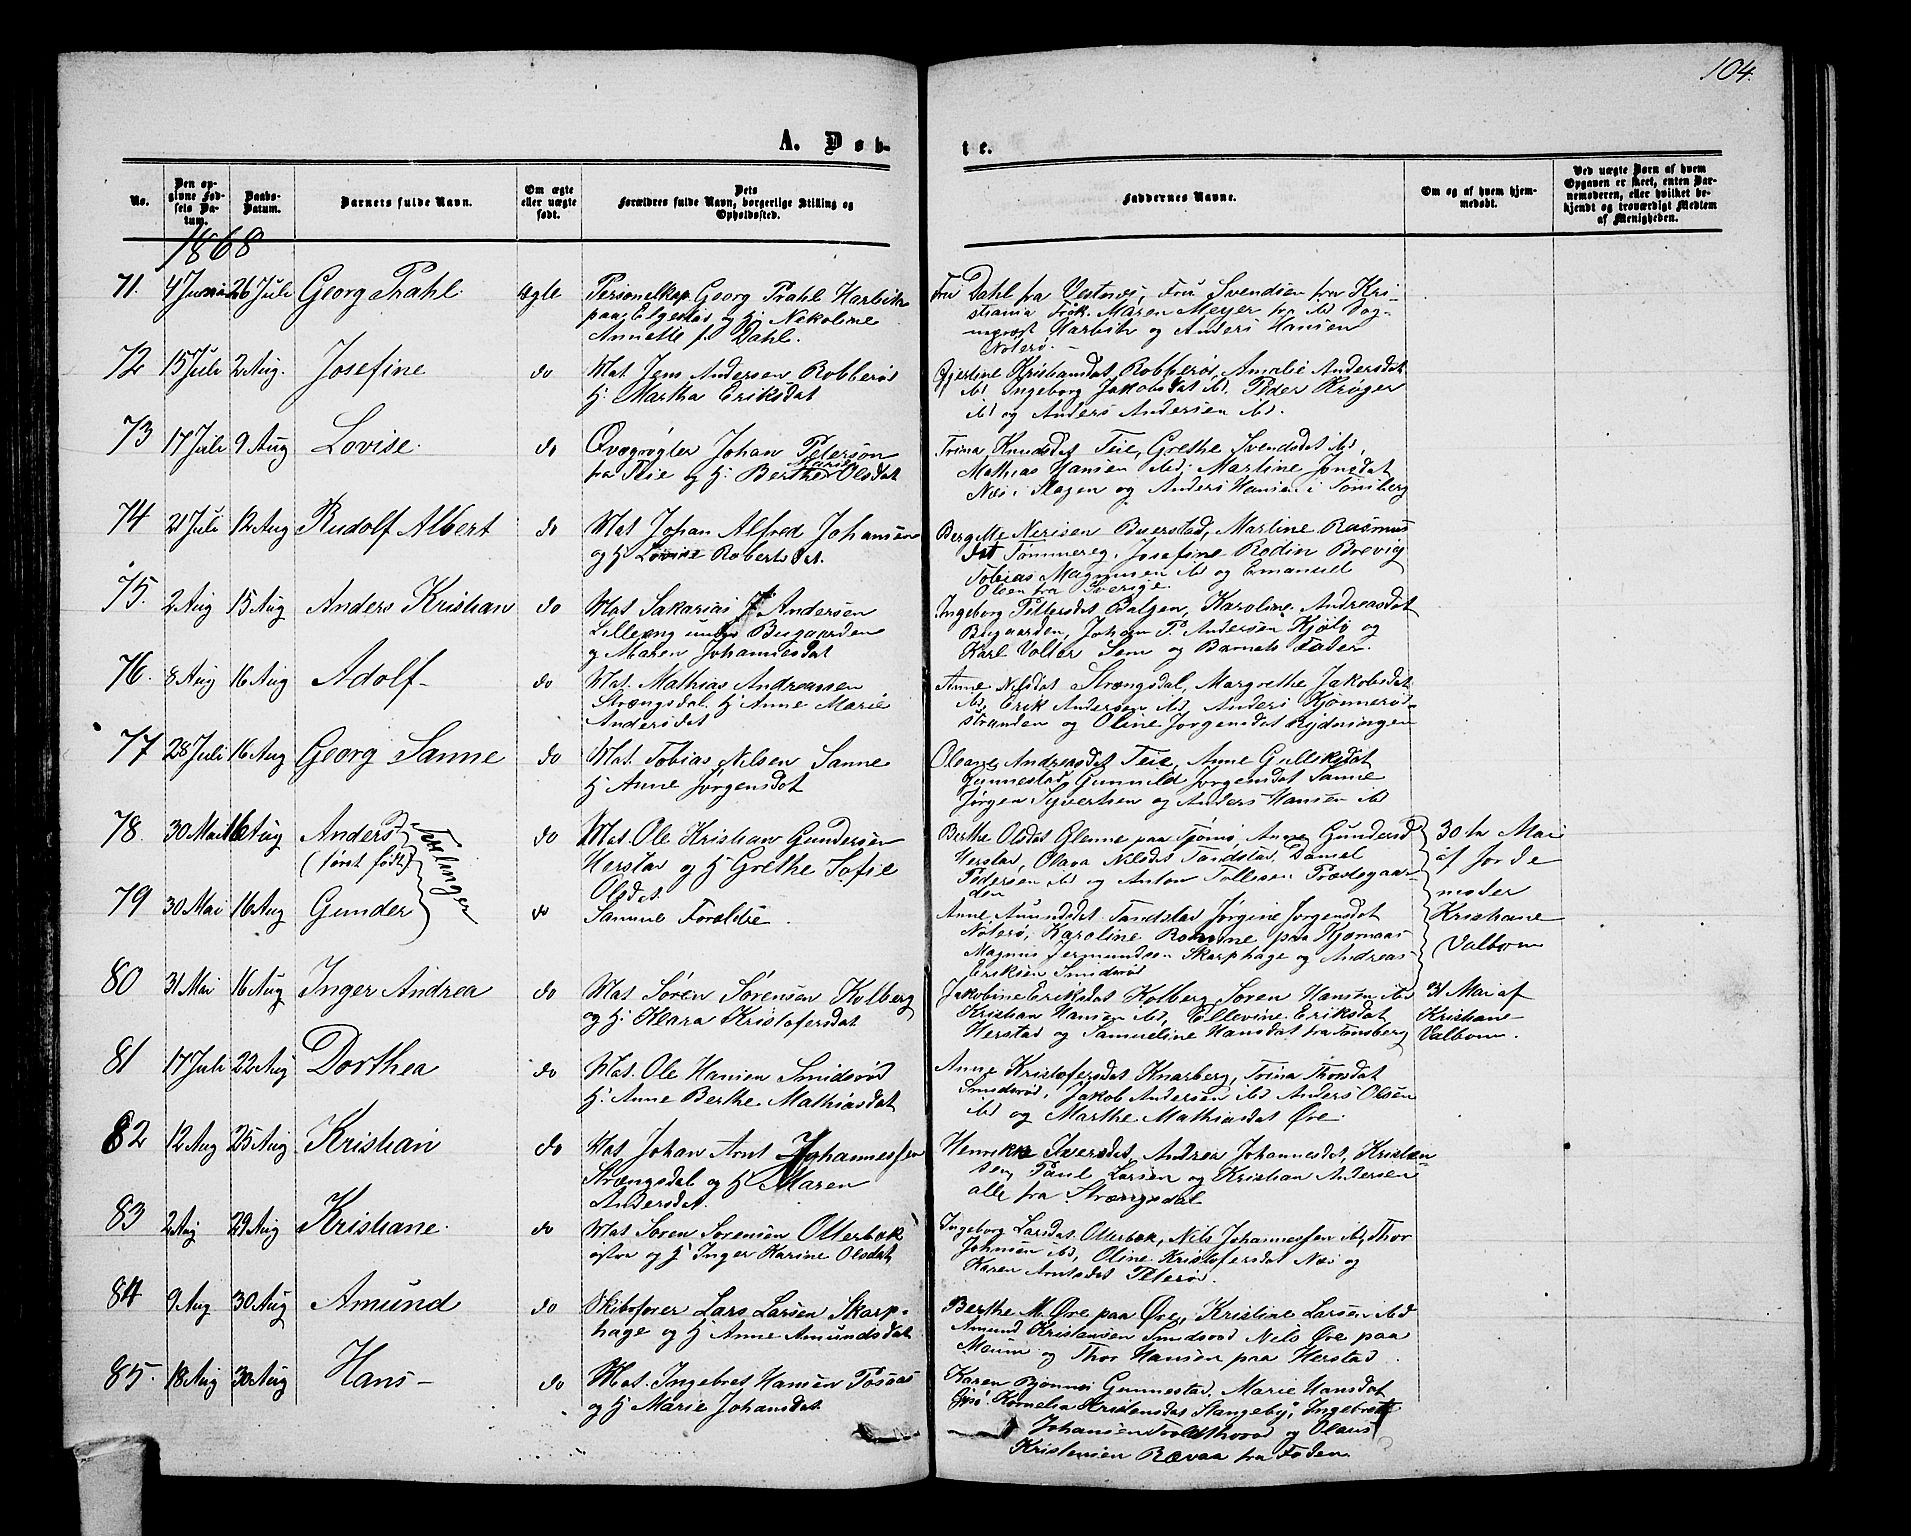 104.
A. Døb-
te.
No.
Den op-
givne Fød-
sels Da-
tum.
Daabs-
Datum.
Barnets fulde Navn.
Om ægte
eller uægte
født.
Dets
Forældres fulde Navn, borgerlige Stilling og
Opholdssted.
Faddernes Navne.
Om og af hvem hjem-
medøbt.
Ved uægte Børn af hvem
Opgaven er skeet, enten Bar-
nemoderen, eller hvilket be-
kjendt og troværdigt Medlem
af Menigheden.
1868
71. 4 Juni 26 Juli Georg Prahl. Ægte
Personelkap. Georg Prahl Harbitz
paa og Hj Nekoline
Annette f. Dahl.
Fru Dahl fra Vestnes, Fru Svendsen fra Kri-
stiania Frøk. Maren Meyer fra ibd Sog-
nepræst Harbitz og Anders Hansen
Nøterø.
72 15 Juli 2 Aug. Josefine do
Mat Jens Andersen Robberøs
Hj. Martha Eriksdat
Gjertine Kristiansdat Robberøs, Amalie Andersdat
ibd Ingeborg Jakobsdat ibd. Peder Krøger
ibd og Anders Andersen ibd.
73 17 Juli 9 Aug Lovise. do
Qvægrøgter Johan Peterson
fra Teie og Hj. Berthe Marie Olsdat
Trina Knudsdat Teie, Grethe Svendsdat ibd,
Mathias Hansen ibd, Martine Jonsdat
Næs i Slagen og Anders Hansen i Tønsberg
74 21 Juli 12 Aug Rudolf Albert do
Mat Johan Alfred Johansen
og Hj Lovise Robertsdat.
Bergitte Nerisen Buerstad, Martine Rasmus
dat Tømmereg, Josefine Rodin Brevig
Tobias Magnusen ibd og Emanuel
Olsen fra Sverige.
75. 2 Aug 15 Aug Anders Kristian do
Mat Sakarias J Andersen
Lilleeng under Bugaarden
og Maren Johannesdat
Ingeborg Pettersdat Balgen, Karoline Andreasdat
Bugaarden, Johan P. Andersen Kjølø og
Karl Volter Sem og Barnets Fader.
76. 8 Aug 16 Aug Adolf do
Mat. Mathias Andreassen
Strængsdal Hj Anne Marie
Andersdat
Anne Nilsdat Strængsdal, Margrethe Jakobsdat
ibd, Erik Andersen ibd, Anders Kjønnerøs
stranden og Oline Jørgensdat Rydningen
77 28 Juli 16 Aug Georg Sanne do
Mat. Tobias Nilsen Sanne
Hj Anne Jørgensdat
Oleane Andreasdat Teie, Anne Gulliksdat
Gunnestad, Gunnild Jørgensdat Sanne
Jørgen Syvertsen og Anders Hansen ibd
78. 30 Mai 16 Aug Anders (først født) Tvillinger do
Mat. Ole Kristian Gundersen
Herstad og Hj Grethe Sofie
Olsdat.
Berthe Olsdat Glenne paa Tjømø, Anne Gundersd
Herstad, Olava Nilsdat Tandstad, Daniel
Pedersen ibd og Anton Tollesen Præstegaar-
den
30te Mai
af Jorde
moder
Kristiane
Valbom
79 30 Mai 16 Aug Gunder do
Samme Forældre.
Anne Amundsdat Tandstad Jørgine Jørgensdat
Nøterø, Karoline paa Kjørnaas
Magnus Jermundsen Skarphage og Andreas
Eriksen Smidsrød
80 31 Mai 16 Aug Inger Andrea do
Mat Søren Sørensen Kolberg
og Hj. Klara Kristofersdat
Jakobine Eriksdat Kolberg, Søren Hansen ibd
Kristian Hansen ibd, Ellevine Eriksdat
Herstad og Samueline Hansdat fra Tønsberg
31 Mai af
Kristiane
Valbom.
81 17 Juli 22 Aug Dorthea do
Mat. Ole Hansen Smidsrød
Hj. Anne Berthe Mathiasdat
Anne Kristofersdat Knarberg, Trina Thorsdat
Smidsrød, Jakob Andersen ibd Anders Olsen
ibd og Marthe Mathiasdat Øre.
82 12 Aug 25 Aug Kristian do
Mat Johan Arnt Johannessen
Strængsdal og Hj Maren
Andersdat.
Henrikke Iversdat, Andrea Johannesdat, Kristen-
sen, Paul Larsen og Kristian Andersen
alle fra Strængsdal
83 2 Aug 29 Aug Kristiane. do
Mat Søren Sørensen Otterbæk
østre og Hj Inger Karine Olsdat
Ingeborg Larsdat Otterbæk, Nils Johannessen ibd, Thor
Johnsen ibd, Oline Kristofersdat Næs og
Karen Arntsdat Peterød.
84 9 Aug 30 Aug Amund do
Skibsfører Lars Larsen Skarp-
hage og Hj Anne Amundsdat
Berthe M. Øre paa Øre, Kristine Larsen ibd
Amund Kristensen Smidsrød Nils Øre paa
Meum og Thor Hansen paa Herstad.
85. 18 Aug 30 Aug Hans do
Mat. Ingebret Hansen
og Hj Marie Johansdat.
Karen Bjønnes Gunnestad. Marie Hansdat
Kornelia Kristensdat Stangeby, Ingebret
Johansen og Olaus
Kristensen Rævaa fra Foden.